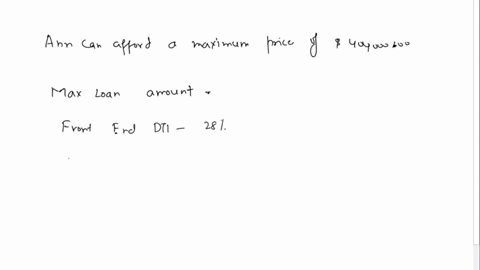 Ann Can afford a maximum price of $ 404,000.00
Max Loan amount
Front End DTI - 28%